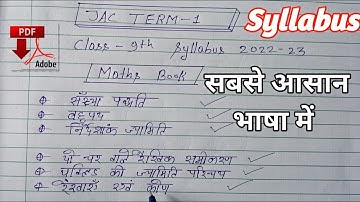 PDF
Adobe
Syllabus
JAC TERM-1
Class - 9th Syllabus 2022-23
Maths Book
सबसे आसान
भाषा में
संख्या पद्धति
बहुपद
निर्देशांक ज्यामिति
दो चर वाले रैखिक समीकरण
यूक्लिड की ज्यामिति परिचय
रेखाएँ एवं कोण